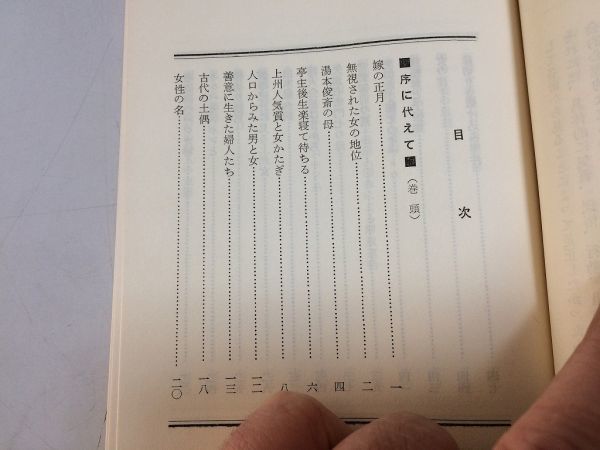 目次
■序に代えて■（巻頭）
嫁の正月……………一
無視された女の地位……………二
湯本俊斎の母……………四
亭主後生楽寝て待ちる……………六
上州人気質と女かたぎ……………八
人口からみた男と女……………一二
善意に生きた婦人たち……………一三
古代の土偶……………一八
女性の名……………二〇